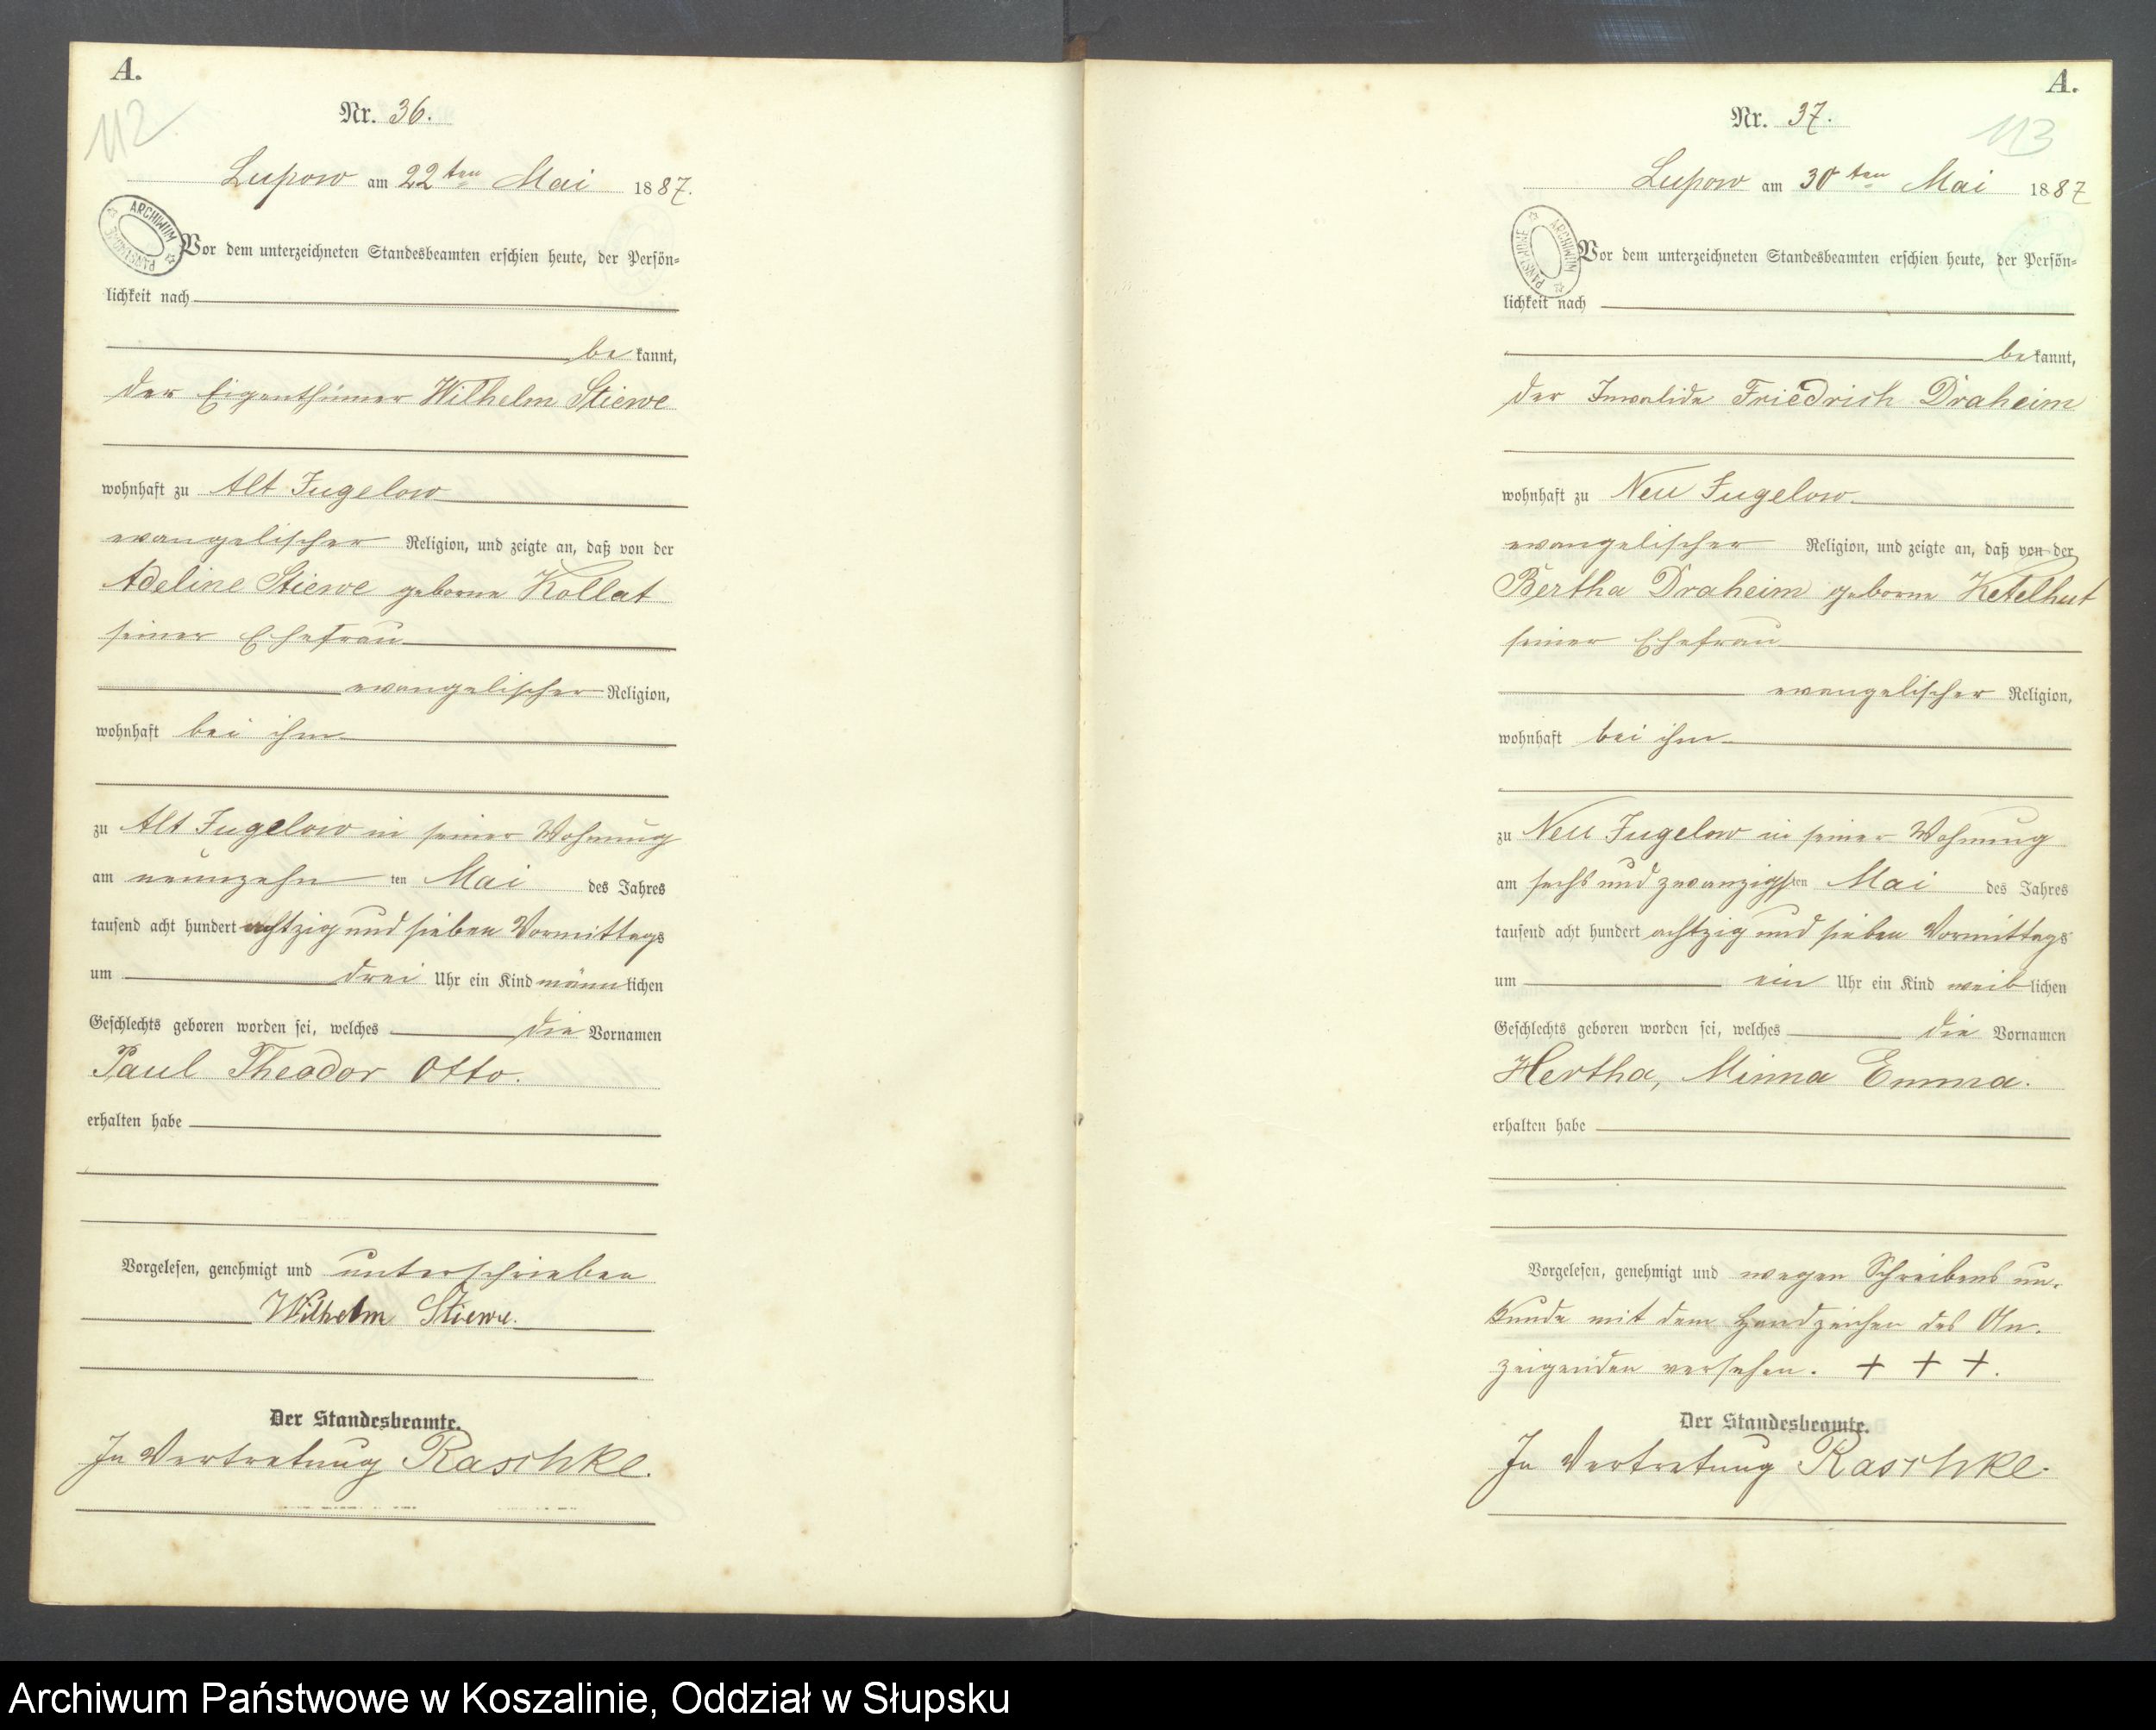 A.
112
Nr. 36.
Lupow am 22ten Mai 1887.
ARCHIWUM PAŃSTWOWE
Vor dem unterzeichneten Standesbeamten erschien heute, der Persön=
lichkeit nach
be kannt,
der Eigenthümer Wilhelm Stiewe
wohnhaft zu Alt Jugelow
evangelischer Religion, und zeigte an, daß von der
Adeline Stiewe geborne Kollat
seiner Ehefrau
evangelischer Religion,
wohnhaft bei ihm
zu Alt Jugelow in seiner Wohnung
am neunzehn ten Mai des Jahres
tausend acht hundert achtzig und sieben Vormittags
um drei Uhr ein Kind männlichen
Geschlechts geboren worden sei, welches die Vornamen
Paul Theodor Otto.
erhalten habe
Vorgelesen, genehmigt und unterschrieben
Wilhelm Stiewe.
Der Standesbeamte.
In Vertretung Raschke.
A.
113
Nr. 37.
Lupow am 30ten Mai 1887
ARCHIWUM PAŃSTWOWE
Vor dem unterzeichneten Standesbeamten erschien heute, der Persön=
lichkeit nach
bekannt,
der Invalide Friedrich Draheim
wohnhaft zu Neu Jugelow
evangelischer Religion, und zeigte an, daß von der
Bertha Draheim geborne Ketelhut
seiner Ehefrau
evangelischer Religion,
wohnhaft bei ihm
zu Neu Jugelow in seiner Wohnung
am sechs und zwanzigsten Mai des Jahres
tausend acht hundert achtzig und sieben Vormittags
um ein Uhr ein Kind weiblichen
Geschlechts geboren worden sei, welches die Vornamen
Hertha, Minna Emma.
erhalten habe
Vorgelesen, genehmigt und wegen Schreibens un-
kunde mit dem Handzeichen des An-
zeigenden versehen. + + +.
Der Standesbeamte.
In Vertretung Raschke.
Archiwum Państwowe w Koszalinie, Oddział w Słupsku